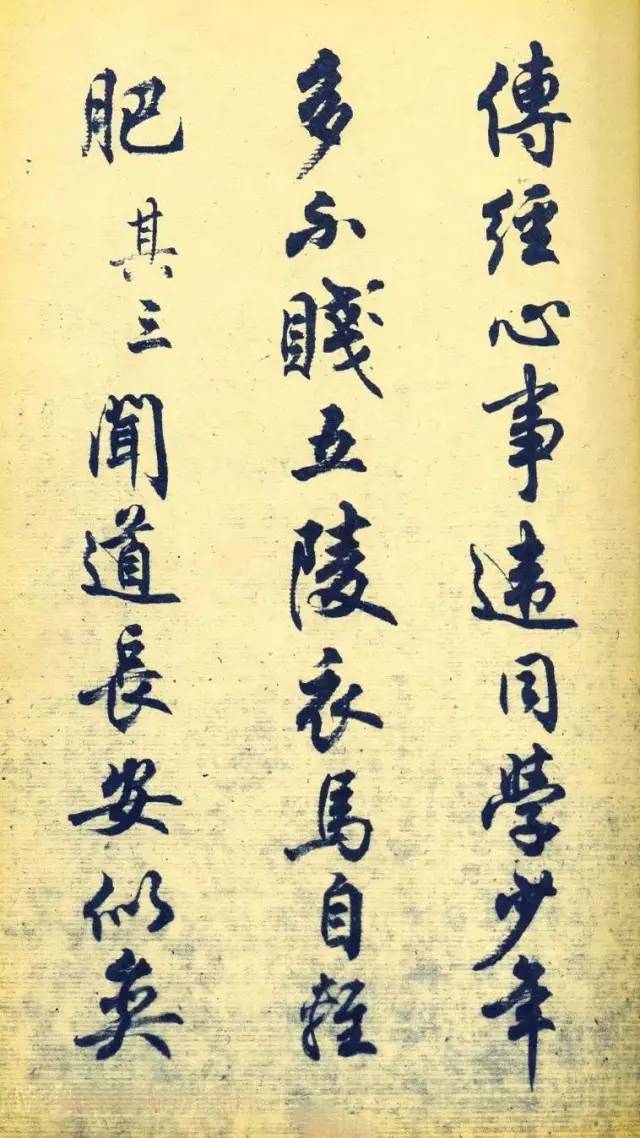 傳經心事違同學少年
多不賤五陵衣馬自輕
肥其三聞道長安似奕